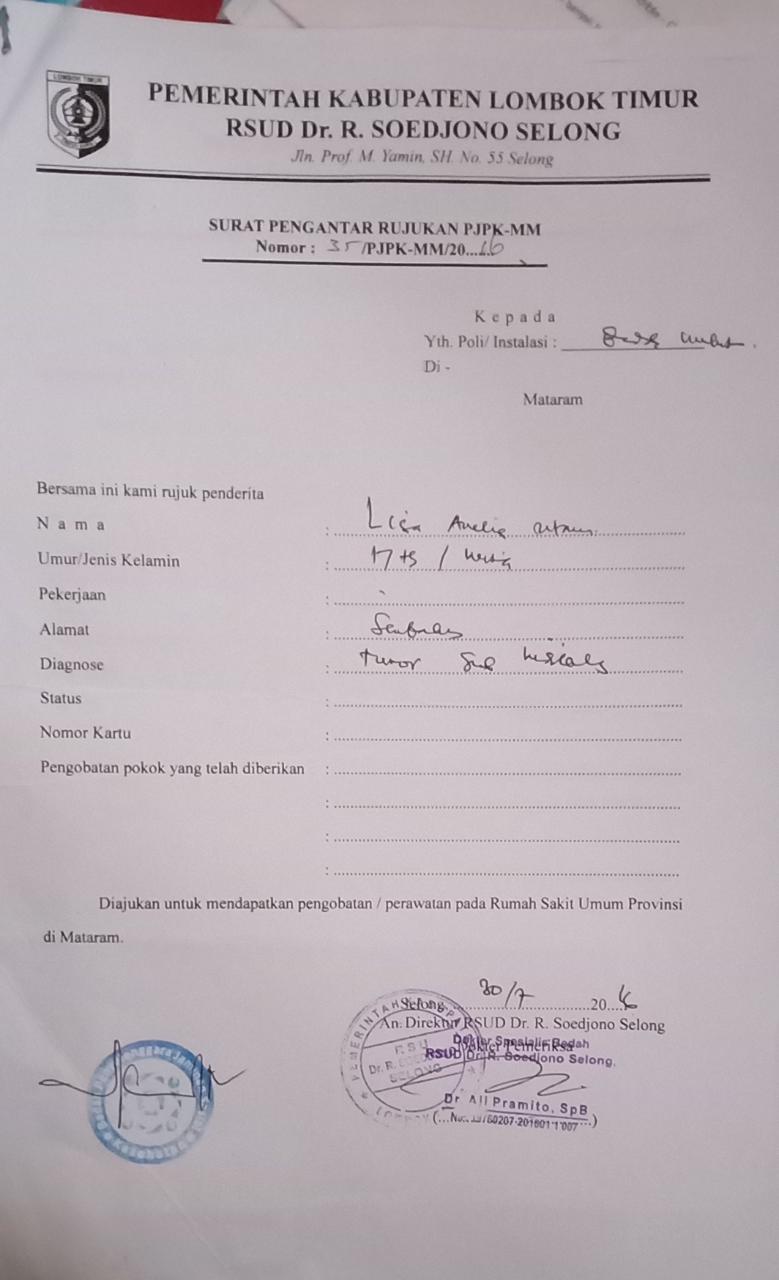 LOMBOK TIMUR
PEMERINTAH KABUPATEN LOMBOK TIMUR
RSUD Dr. R. SOEDJONO SELONG
Jln. Prof. M. Yamin, SH. No. 55 Selong
SURAT PENGANTAR RUJUKAN PJPK-MM
Nomor : 35 /PJPK-MM/20...16
Kepada
Yth. Poli/ Instalasi :
Di -
Mataram
Bersama ini kami rujuk penderita
Nama : Lisa Amelia
Umur/Jenis Kelamin : 17 th /
Pekerjaan : -
Alamat :
Diagnose : Tumor
Status :
Nomor Kartu :
Pengobatan pokok yang telah diberikan :
:
:
:
Diajukan untuk mendapatkan pengobatan / perawatan pada Rumah Sakit Umum Provinsi
di Mataram.
Selong, 30/7 20 16
An. Direktur RSUD Dr. R. Soedjono Selong
Dokter Spesialis Bedah
Dokter Pemeriksa
RSUD Dr. R. Soedjono Selong.
Dr. Ali Pramito, SpB
PEMERINTAH
RSU
Dr. R. SOEDJONO
SELONG